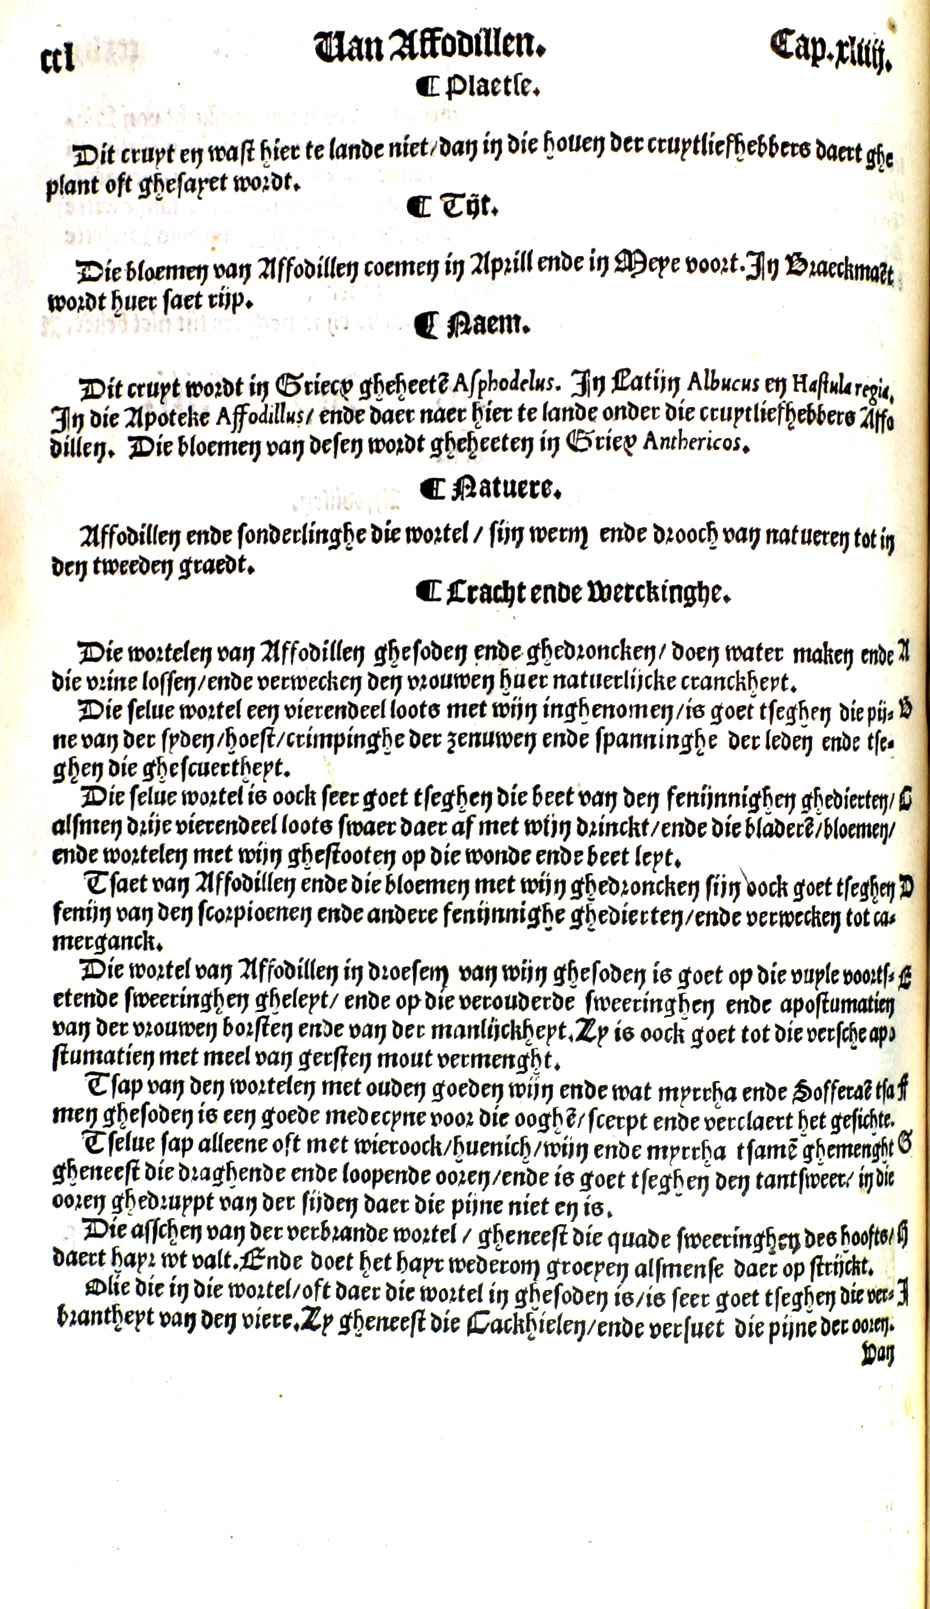 ccl Van Affodillen. Cap.xliiij.
¶ Plaetse.
Dit cruyt en wast hier te lande niet/dan in die houen der cruytliefhebbers daert ghe
plant oft ghesayet wordt.
¶ Tijt.
Die bloemen van Affodillen coemen in Aprill ende in Meye voort. In Braeckmaēt
wordt huer saet rijp.
¶ Naem.
Dit cruyt wordt in Griecx gheheetē Asphodelus. In Latijn Albucus en Hastula regia.
In die Apoteke Affodillus/ ende daer naer hier te lande onder die cruytliefhebbers Affo
dillen. Die bloemen van desen wordt gheheeten in Griex Anthericos.
¶ Natuere.
Affodillen ende sonderlinghe die wortel / sijn werm ende drooch van natueren tot in
den tweeden graedt.
¶ Cracht ende Werckinghe.
Die wortelen van Affodillen ghesoden ende ghedroncken/ doen water maken ende A
die vrine lossen/ende verwecken den vrouwen huer natuerlijcke cranckheyt.
Die selue wortel een vierendeel loots met wijn inghenomen/is goet tseghen die pij- B
ne van der syden/hoest/crimpinghe der zenuwen ende spanninghe der leden ende tse-
ghen die ghescuertheyt.
Die selue wortel is oock seer goet tseghen die beet van den fenijnnighen ghedierten/ C
alsmen drije vierendeel loots swaer daer af met wijn drinckt/ende die bladerē/bloemen/
ende wortelen met wijn ghestooten op die wonde ende beet leyt.
Tsaet van Affodillen ende die bloemen met wijn ghedroncken sijn oock goet tseghen D
fenijn van den scorpioenen ende andere fenijnnighe ghedierten/ende verwecken tot ca-
merganck.
Die wortel van Affodillen in droesem van wijn ghesoden is goet op die vuyle voorts- E
etende sweeringhen gheleyt/ ende op die verouderde sweeringhen ende apostumatien
van der vrouwen borsten ende van der manlijckheyt. Zy is oock goet tot die versche apo
stumatien met meel van gersten mout vermenght.
Tsap van den wortelen met ouden goeden wijn ende wat myrrha ende Sofferaē tsa F
men ghesoden is een goede medecyne voor die ooghē/scerpt ende verclaert het gesichte.
Tselue sap alleene oft met wieroock/huenich/wijn ende myrrha tsamē ghemenght G
gheneest die draghende ende loopende ooren/ende is goet tseghen den tantsweer/ in die
ooren ghedruypt van der sijden daer die pijne niet en is.
Die asschen van der verbrande wortel / gheneest die quade sweeringhen des hoofts/ H
daert hayr wt valt. Ende doet het hayr wederom groeyen alsmense daer op strijckt.
Olie die in die wortel/oft daer die wortel in ghesoden is/is seer goet tseghen die ver- I
brantheyt van den viere. Zy gheneest die Cackhielen/ende versuet die pijne der ooren.
Van